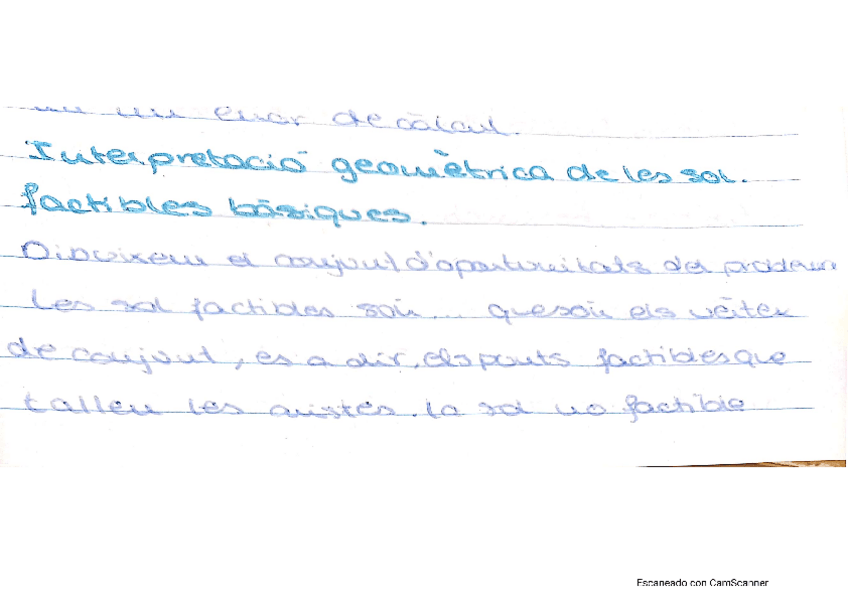 un error de càlcul.
Interpretació geomètrica de les sol.
factibles bàsiques.
Dibuixem el conjunt d'oportunitats del problem
Les sol factibles són... que són els vèrtex
de conjunt, és a dir, els punts factibles que
tallen les aristes. La sol no factible
Escaneado con CamScanner